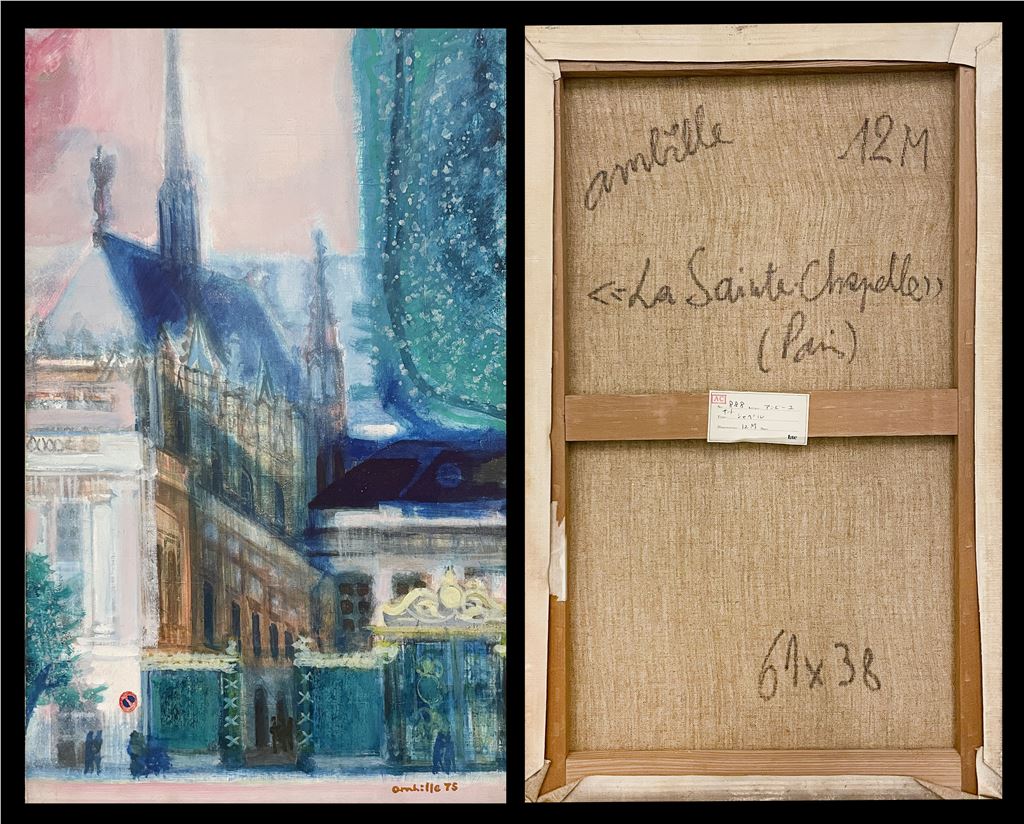 ambille 75
ambille
12M
<<La Sainte-Chapelle>>
(Paris)
AC
888 アンビーユ
サント シャペル
12M
61x38